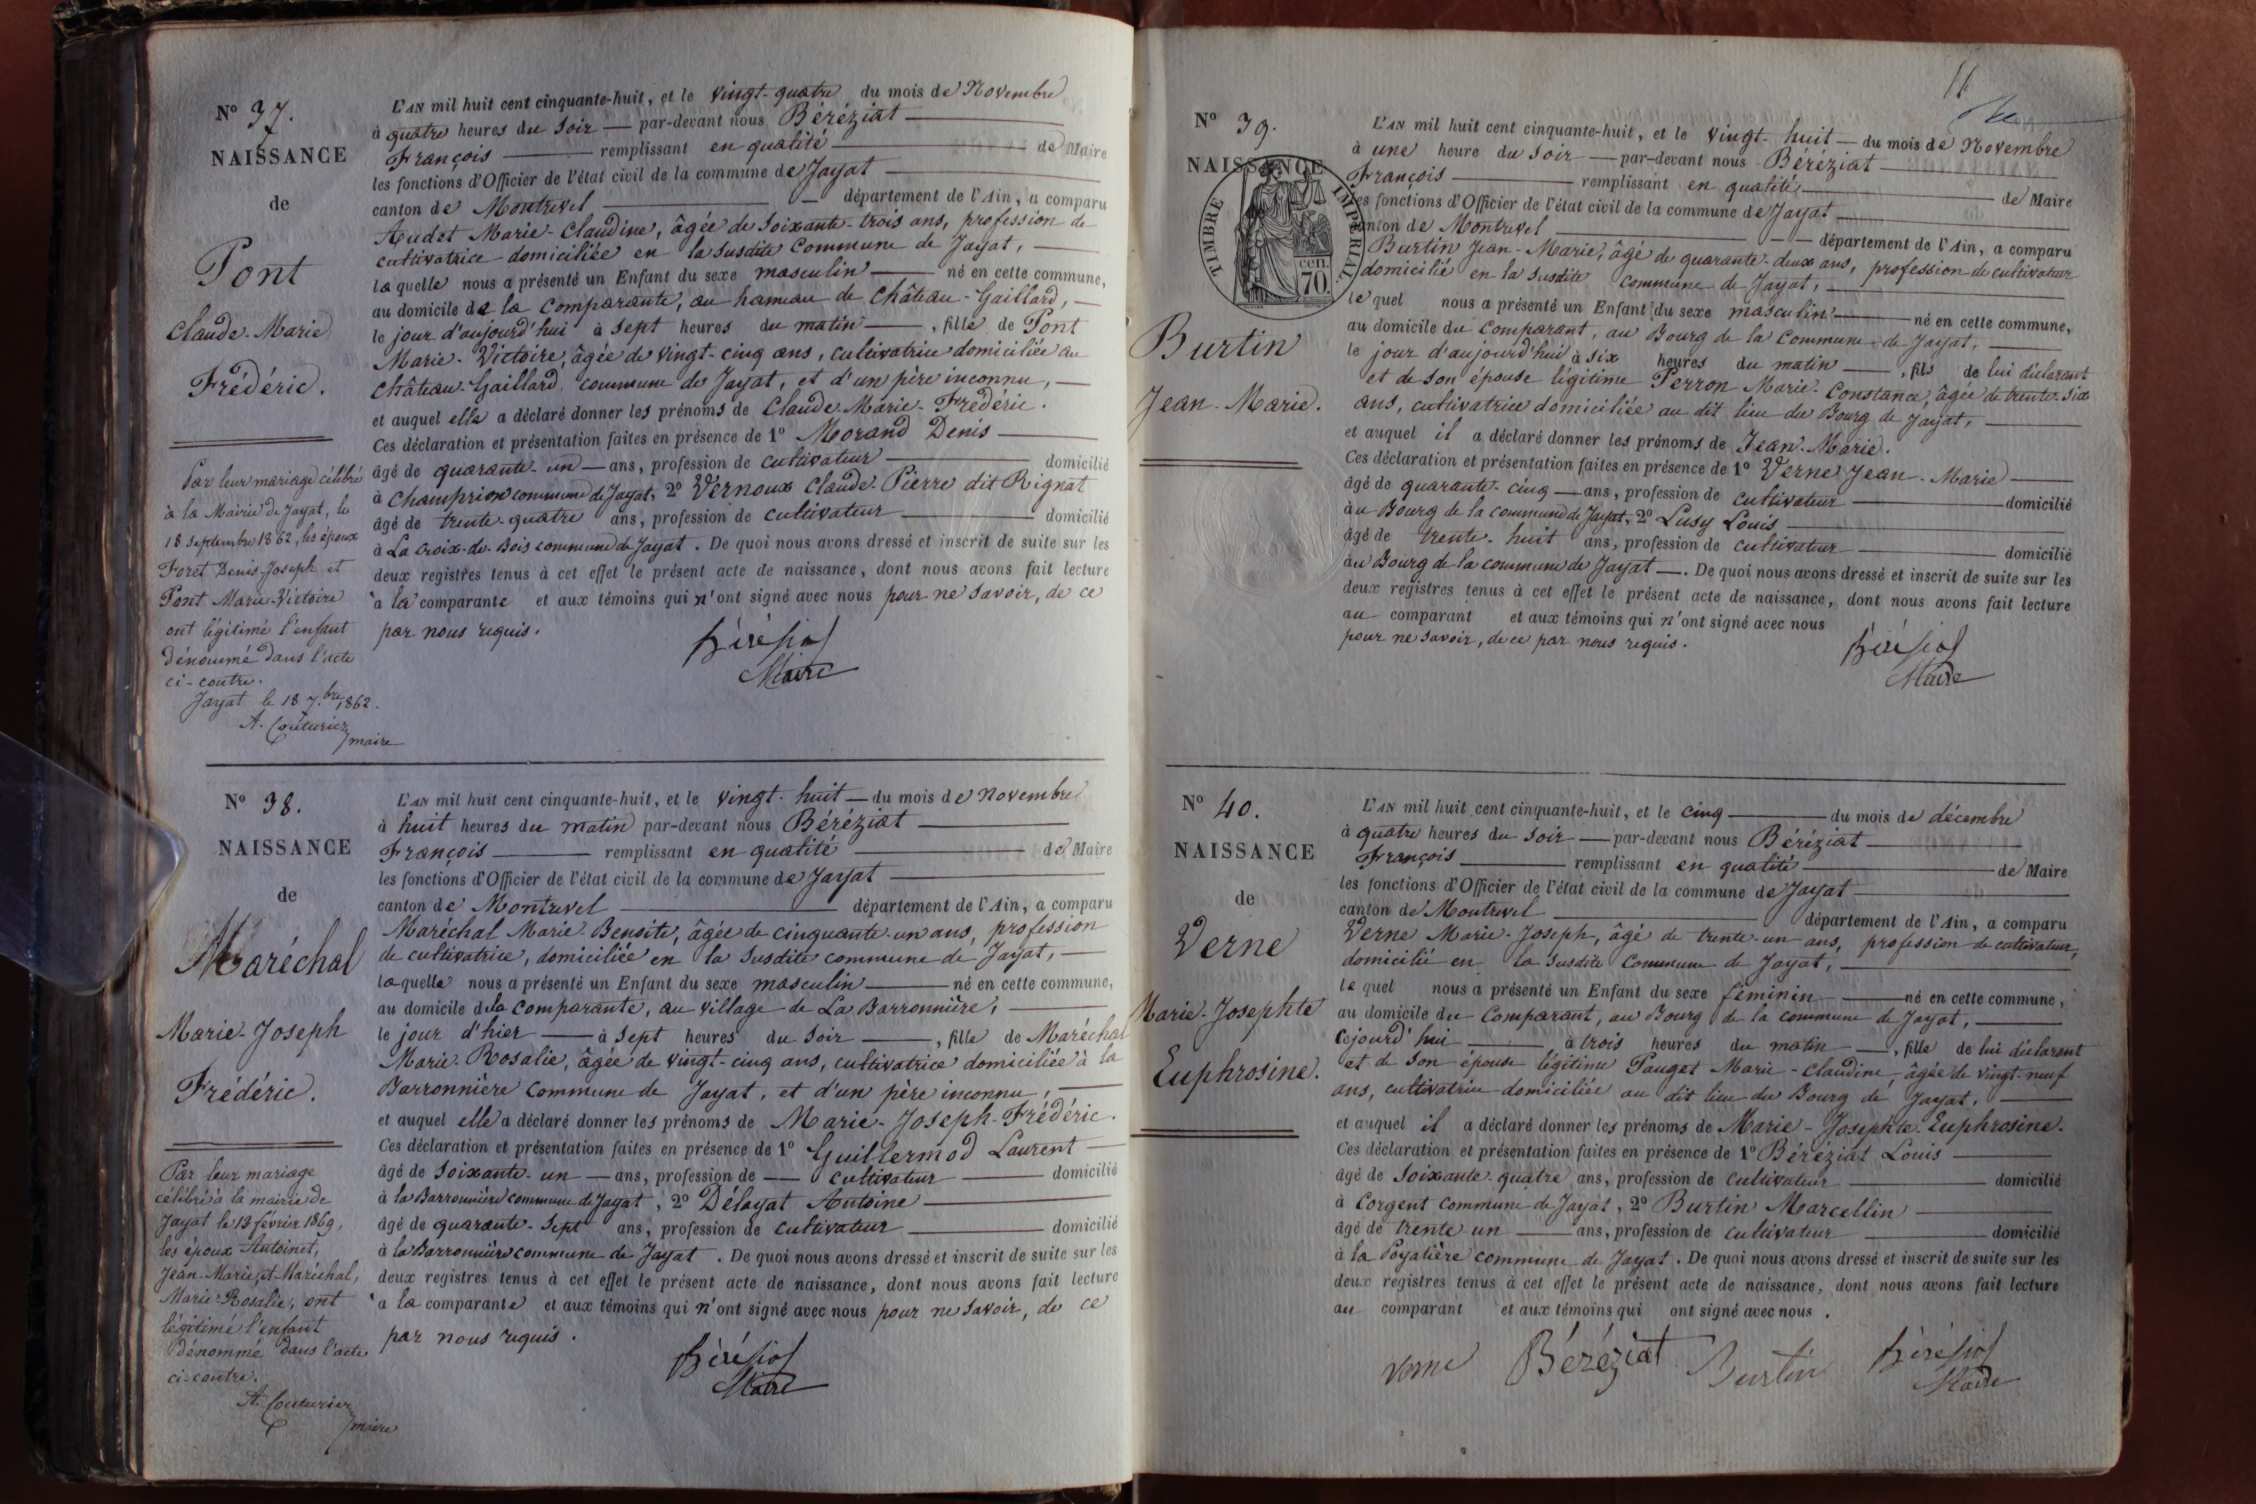 N° 37.
NAISSANCE
de
Pont
Claude-Marie
Frédéric.
Par leur mariage célébré
à la Mairie de Jayat, le
18 septembre 1862, les époux
Foret Denis-Joseph et
Pont Marie-Victoire
ont légitimé l'enfant
dénommé dans l'acte
ci-contre.
Jayat le 18 7.bre 1862.
A. Couturier
maire
L'AN mil huit cent cinquante-huit, et le vingt-quatre du mois de Novembre
à quatre heures du soir — par-devant nous Béréziat
François — remplissant en qualité — de Maire
les fonctions d'Officier de l'état civil de la commune de Jayat
canton de Montrevel — département de l'Ain, a comparu
Audet Marie-Claudine, âgée de soixante-trois ans, profession de
cultivatrice domiciliée en la susdite commune de Jayat, —
laquelle nous a présenté un Enfant du sexe masculin — né en cette commune,
au domicile de la comparante, au hameau de Château-Gaillard, —
le jour d'aujourd'hui à sept heures du matin —, fille de Pont
Marie-Victoire, âgée de vingt-cinq ans, cultivatrice domiciliée au
Château-Gaillard, commune de Jayat, et d'un père inconnu, —
et auquel elle a déclaré donner les prénoms de Claude-Marie-Frédéric.
Ces déclaration et présentation faites en présence de 1° Morand Denis —
âgé de quarante-un — ans, profession de cultivateur — domicilié
à Champrion commune de Jayat, 2° Vernoux Claude-Pierre dit Rignat
âgé de trente-quatre ans, profession de cultivateur — domicilié
à La Croix-de-Bois commune de Jayat. De quoi nous avons dressé et inscrit de suite sur les
deux registres tenus à cet effet le présent acte de naissance, dont nous avons fait lecture
à la comparante et aux témoins qui n'ont signé avec nous pour ne savoir, de ce
par nous requis.
Béréziat
Maire
N° 38.
NAISSANCE
de
Maréchal
Marie-Joseph
Frédéric.
Par leur mariage
célébré à la mairie de
Jayat le 13 février 1869,
les époux Antoinet,
Jean-Marie et Maréchal,
Marie-Rosalie, ont
légitimé l'enfant
dénommé dans l'acte
ci-contre.
A. Couturier
maire
L'AN mil huit cent cinquante-huit, et le vingt-huit — du mois de Novembre
à huit heures du matin par-devant nous Béréziat
François — remplissant en qualité — de Maire
les fonctions d'Officier de l'état civil de la commune de Jayat
canton de Montrevel — département de l'Ain, a comparu
Maréchal Marie-Benoite, âgée de cinquante-un ans, profession
de cultivatrice, domiciliée en la susdite commune de Jayat, —
laquelle nous a présenté un Enfant du sexe masculin — né en cette commune,
au domicile de la comparante, au village de La Barronnière, —
le jour d'hier — à sept heures du soir —, fille de Maréchal
Marie-Rosalie, âgée de vingt-cinq ans, cultivatrice domiciliée à la
Barronnière commune de Jayat, et d'un père inconnu, —
et auquel elle a déclaré donner les prénoms de Marie-Joseph-Frédéric.
Ces déclaration et présentation faites en présence de 1° Guillermod Laurent —
âgé de soixante-un — ans, profession de — cultivateur — domicilié
à la Barronnière commune de Jayat, 2° Délayat Antoine —
âgé de quarante-sept ans, profession de cultivateur — domicilié
à la Barronnière commune de Jayat. De quoi nous avons dressé et inscrit de suite sur les
deux registres tenus à cet effet le présent acte de naissance, dont nous avons fait lecture
à la comparante et aux témoins qui n'ont signé avec nous pour ne savoir, de ce
par nous requis.
Béréziat
Maire
11
N° 39.
NAISSANCE
TIMBRE IMPÉRIAL
cen. 70.
Burtin
Jean-Marie.
L'AN mil huit cent cinquante-huit, et le vingt-huit — du mois de Novembre
à une heure du soir — par-devant nous Béréziat
François — remplissant en qualité — de Maire
les fonctions d'Officier de l'état civil de la commune de Jayat
canton de Montrevel — département de l'Ain, a comparu
Burtin Jean-Marie, âgé de quarante-deux ans, profession de cultivateur
domicilié en la susdite commune de Jayat, —
lequel nous a présenté un Enfant du sexe masculin — né en cette commune,
au domicile du comparant, au Bourg de la commune de Jayat, —
le jour d'aujourd'hui à six heures du matin —, fils de lui déclarant
et de son épouse légitime Perron Marie-Constance, âgée de trente-six
ans, cultivatrice domiciliée au dit lieu du Bourg de Jayat, —
et auquel il a déclaré donner les prénoms de Jean-Marie.
Ces déclaration et présentation faites en présence de 1° Verne Jean-Marie —
âgé de quarante-cinq — ans, profession de cultivateur — domicilié
au Bourg de la commune de Jayat, 2° Lusy Louis —
âgé de trente-huit ans, profession de cultivateur — domicilié
au Bourg de la commune de Jayat —. De quoi nous avons dressé et inscrit de suite sur les
deux registres tenus à cet effet le présent acte de naissance, dont nous avons fait lecture
au comparant et aux témoins qui n'ont signé avec nous
pour ne savoir, de ce par nous requis.
Béréziat
Maire
N° 40.
NAISSANCE
de
Verne
Marie-Josephte
Euphrosine.
L'AN mil huit cent cinquante-huit, et le cinq — du mois de décembre
à quatre heures du soir — par-devant nous Béréziat
François — remplissant en qualité — de Maire
les fonctions d'Officier de l'état civil de la commune de Jayat
canton de Montrevel — département de l'Ain, a comparu
Verne Marie-Joseph, âgé de trente-un ans, profession de cultivateur,
domicilié en la susdite commune de Jayat, —
lequel nous a présenté un Enfant du sexe féminin — né en cette commune,
au domicile du comparant, au Bourg de la commune de Jayat, —
cejourd'hui — à trois heures du matin —, fille de lui déclarant
et de son épouse légitime Pauget Marie-Claudine, âgée de vingt-neuf
ans, cultivatrice domiciliée au dit lieu du Bourg de Jayat, —
et auquel il a déclaré donner les prénoms de Marie-Josephte-Euphrosine.
Ces déclaration et présentation faites en présence de 1° Béréziat Louis —
âgé de soixante-quatre ans, profession de cultivateur — domicilié
à Corgent commune de Jayat, 2° Burtin Marcellin —
âgé de trente un — ans, profession de cultivateur — domicilié
à la Poyatière commune de Jayat. De quoi nous avons dressé et inscrit de suite sur les
deux registres tenus à cet effet le présent acte de naissance, dont nous avons fait lecture
au comparant et aux témoins qui ont signé avec nous.
Verne Béréziat Burtin Béréziat
Maire